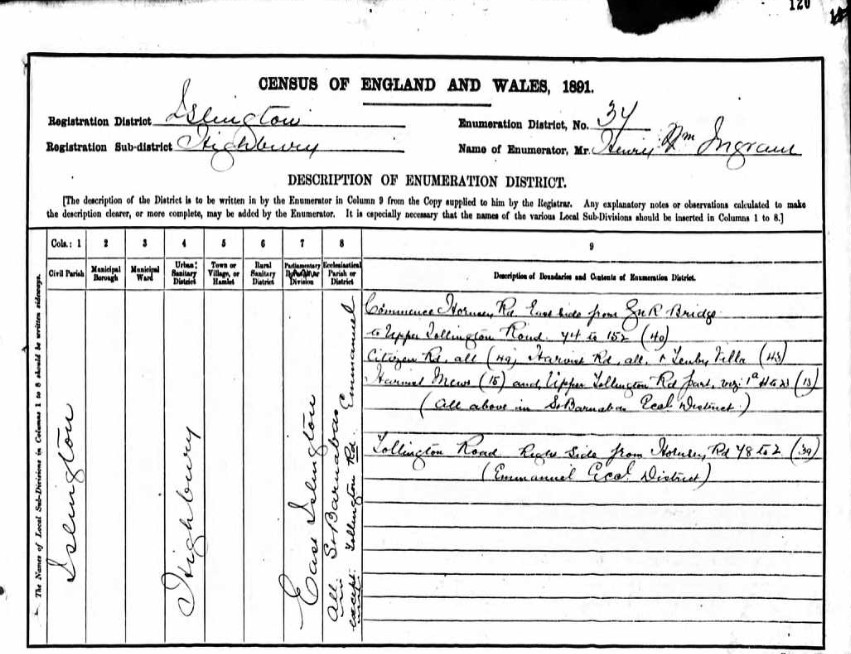 120
CENSUS OF ENGLAND AND WALES, 1891.
Registration District Islington
Enumeration District, No. 34
Registration Sub-district Highbury
Name of Enumerator, Mr. Henry Wm Ingram
DESCRIPTION OF ENUMERATION DISTRICT.
[The description of the District is to be written in by the Enumerator in Column 9 from the Copy supplied to him by the Registrar. Any explanatory notes or observations calculated to make
the description clearer, or more complete, may be added by the Enumerator. It is especially necessary that the names of the various Local Sub-Divisions should be inserted in Columns 1 to 8.]
Cols.: 1 2 3 4 5 6 7 8 9
Civil Parish
Municipal Borough
Municipal Ward
Urban Sanitary District
Town or Village, or Hamlet
Rural Sanitary District
Parliamentary Division
Ecclesiastical Parish or District
Description of Boundaries and Contents of Enumeration District.
The Names of Local Sub-Divisions in Columns 1 to 8 should be written sideways.
Islington
Highbury
East Islington
All in St Barnabas
except Tollington Rd Emmanuel
Commence Hornsey Rd East side from G N R Bridge
to Upper Tollington Road. 74 to 152 (40)
Citizen Rd, all (49) Rd, all, & Tenby Villa (43)
Mews (15) and Upper Tollington Rd part, viz: 1a to (13)
(All above in St Barnabas Eccl District.)
Tollington Road side from Hornsey Rd 78 to 2 (39)
(Emmanuel Eccl District)